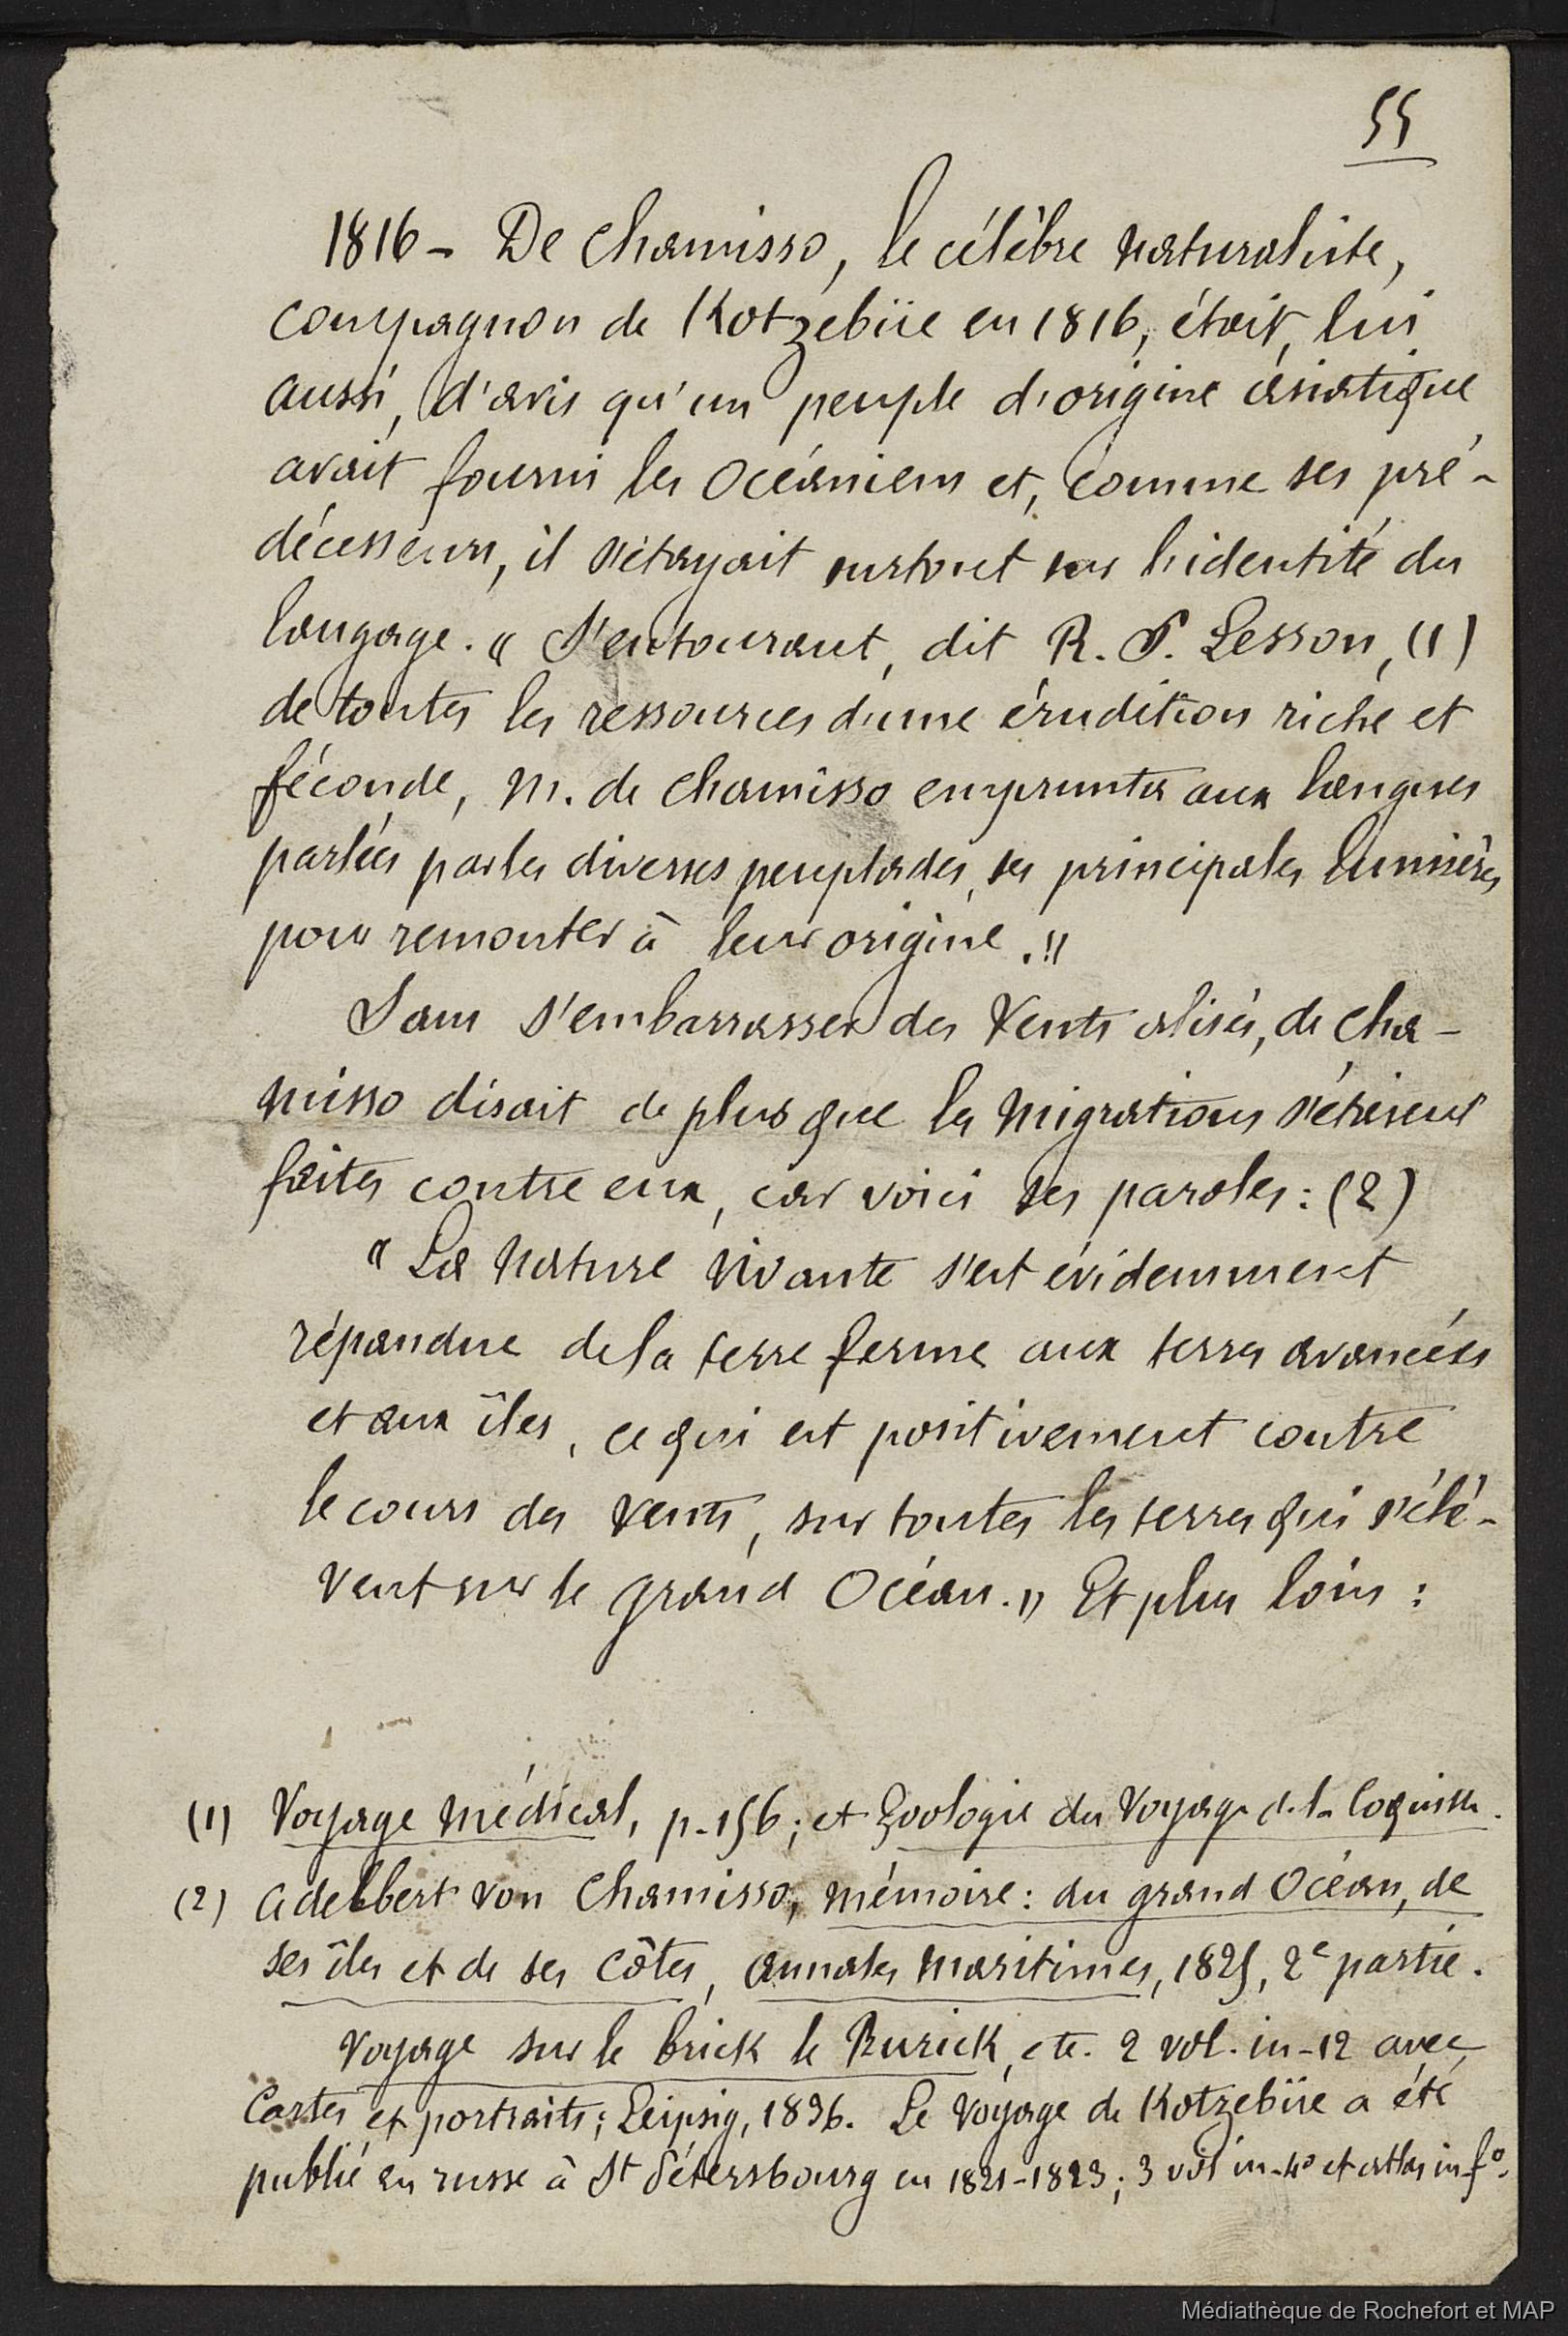 55
1816 - De Chamisso, le célèbre naturaliste,
compagnon de Kotzebüe en 1816, était, lui
aussi, d'avis qu'un peuple d'origine asiatique
avait fourni les Océaniens et, comme ses pré-
décesseurs, il s'étayait surtout sur l'identité du
langage. « S'entourant, dit R. P. Lesson, (1)
de toutes les ressources d'une érudition riche et
féconde, M. de Chamisso emprunta aux langues
parlées par les diverses peuplades, ses principales lumières
pour remonter à leur origine. »
Sans s'embarrasser des vents alisés, de Cha-
misso disait de plus que les migrations s'étaient
faites contre eux, car voici ses paroles : (2)
« La nature vivante s'est évidemment
répandue de la terre ferme aux terres avancées
et aux îles, ce qui est positivement contre
le cours des vents, sur toutes les terres qui s'élè-
vent sur le grand Océan. » Et plus loin :
(1) Voyage médical, p. 156 ; et Zoologie du Voyage de la Coquille.
(2) Adelbert von Chamisso, mémoire : du grand Océan, de
ses îles et de ses côtes, Annales maritimes, 1825, 2e partie.
Voyage sur le brick le Rurick, etc. 2 vol. in-12 avec
Cartes et portraits ; Leipsig, 1836. Le voyage de Kotzebüe a été
publié en russe à St Pétersbourg en 1821-1823 ; 3 vol in-4o et atlas in fo.
Médiathèque de Rochefort et MAP